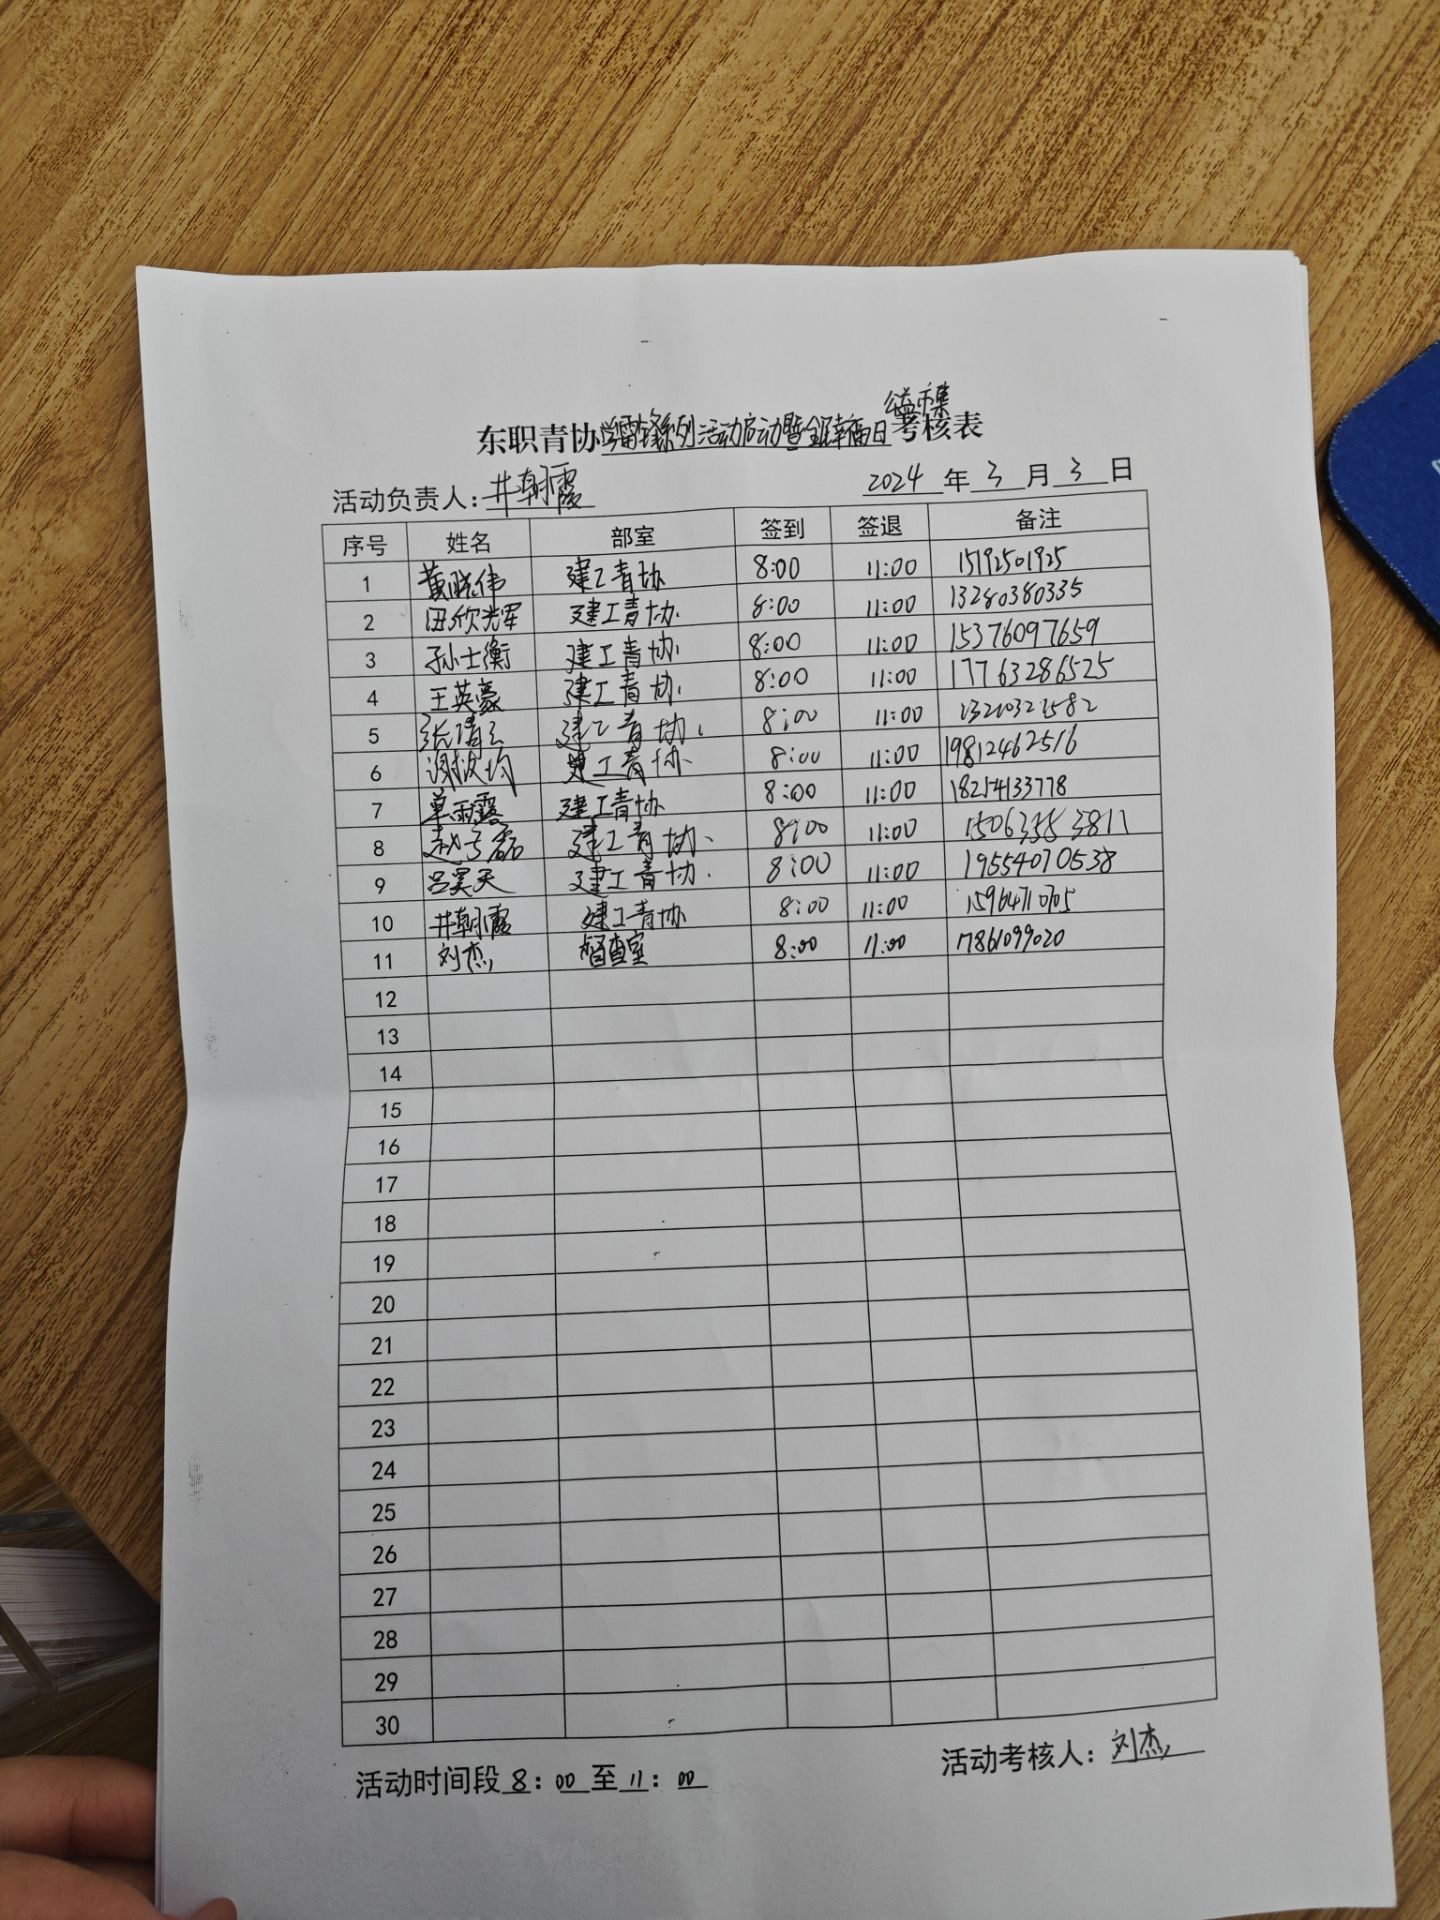 公益市集
东职青协学雷锋系列活动启动暨全环幸福日考核表
活动负责人：井朝霞 2024年3月3日
序号 姓名 部室 签到 签退 备注
1 黄晓伟 建工青协 8:00 11:00 15192501925
2 田欣光军 建工青协 8:00 11:00 13280380335
3 孙士衡 建工青协 8:00 11:00 15376097659
4 王英豪 建工青协 8:00 11:00 17763286525
5 建工青协 8:00 11:00
6 建工青协 8:00 11:00 19812462516
7 单雨露 建工青协 8:00 11:00 18254133778
8 建工青协 8:00 11:00 15063353811
9 吕昊天 建工青协 8:00 11:00 19554070538
10 井朝霞 建工青协 8:00 11:00
11 刘杰 督查室 8:00 11:00 17861099020
12
13
14
15
16
17
18
19
20
21
22
23
24
25
26
27
28
29
30
活动时间段 8：00 至 11：00 活动考核人：刘杰